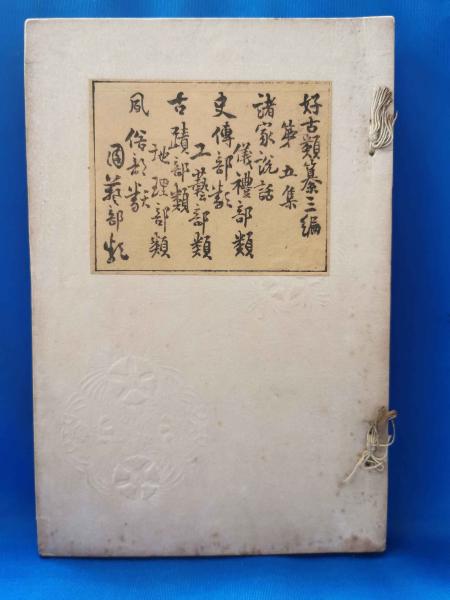 好古類纂三編
第五集
諸家説話
儀禮部類
史傳部類
工藝部類
古蹟部類
地理部類
風俗部類
園藝部類